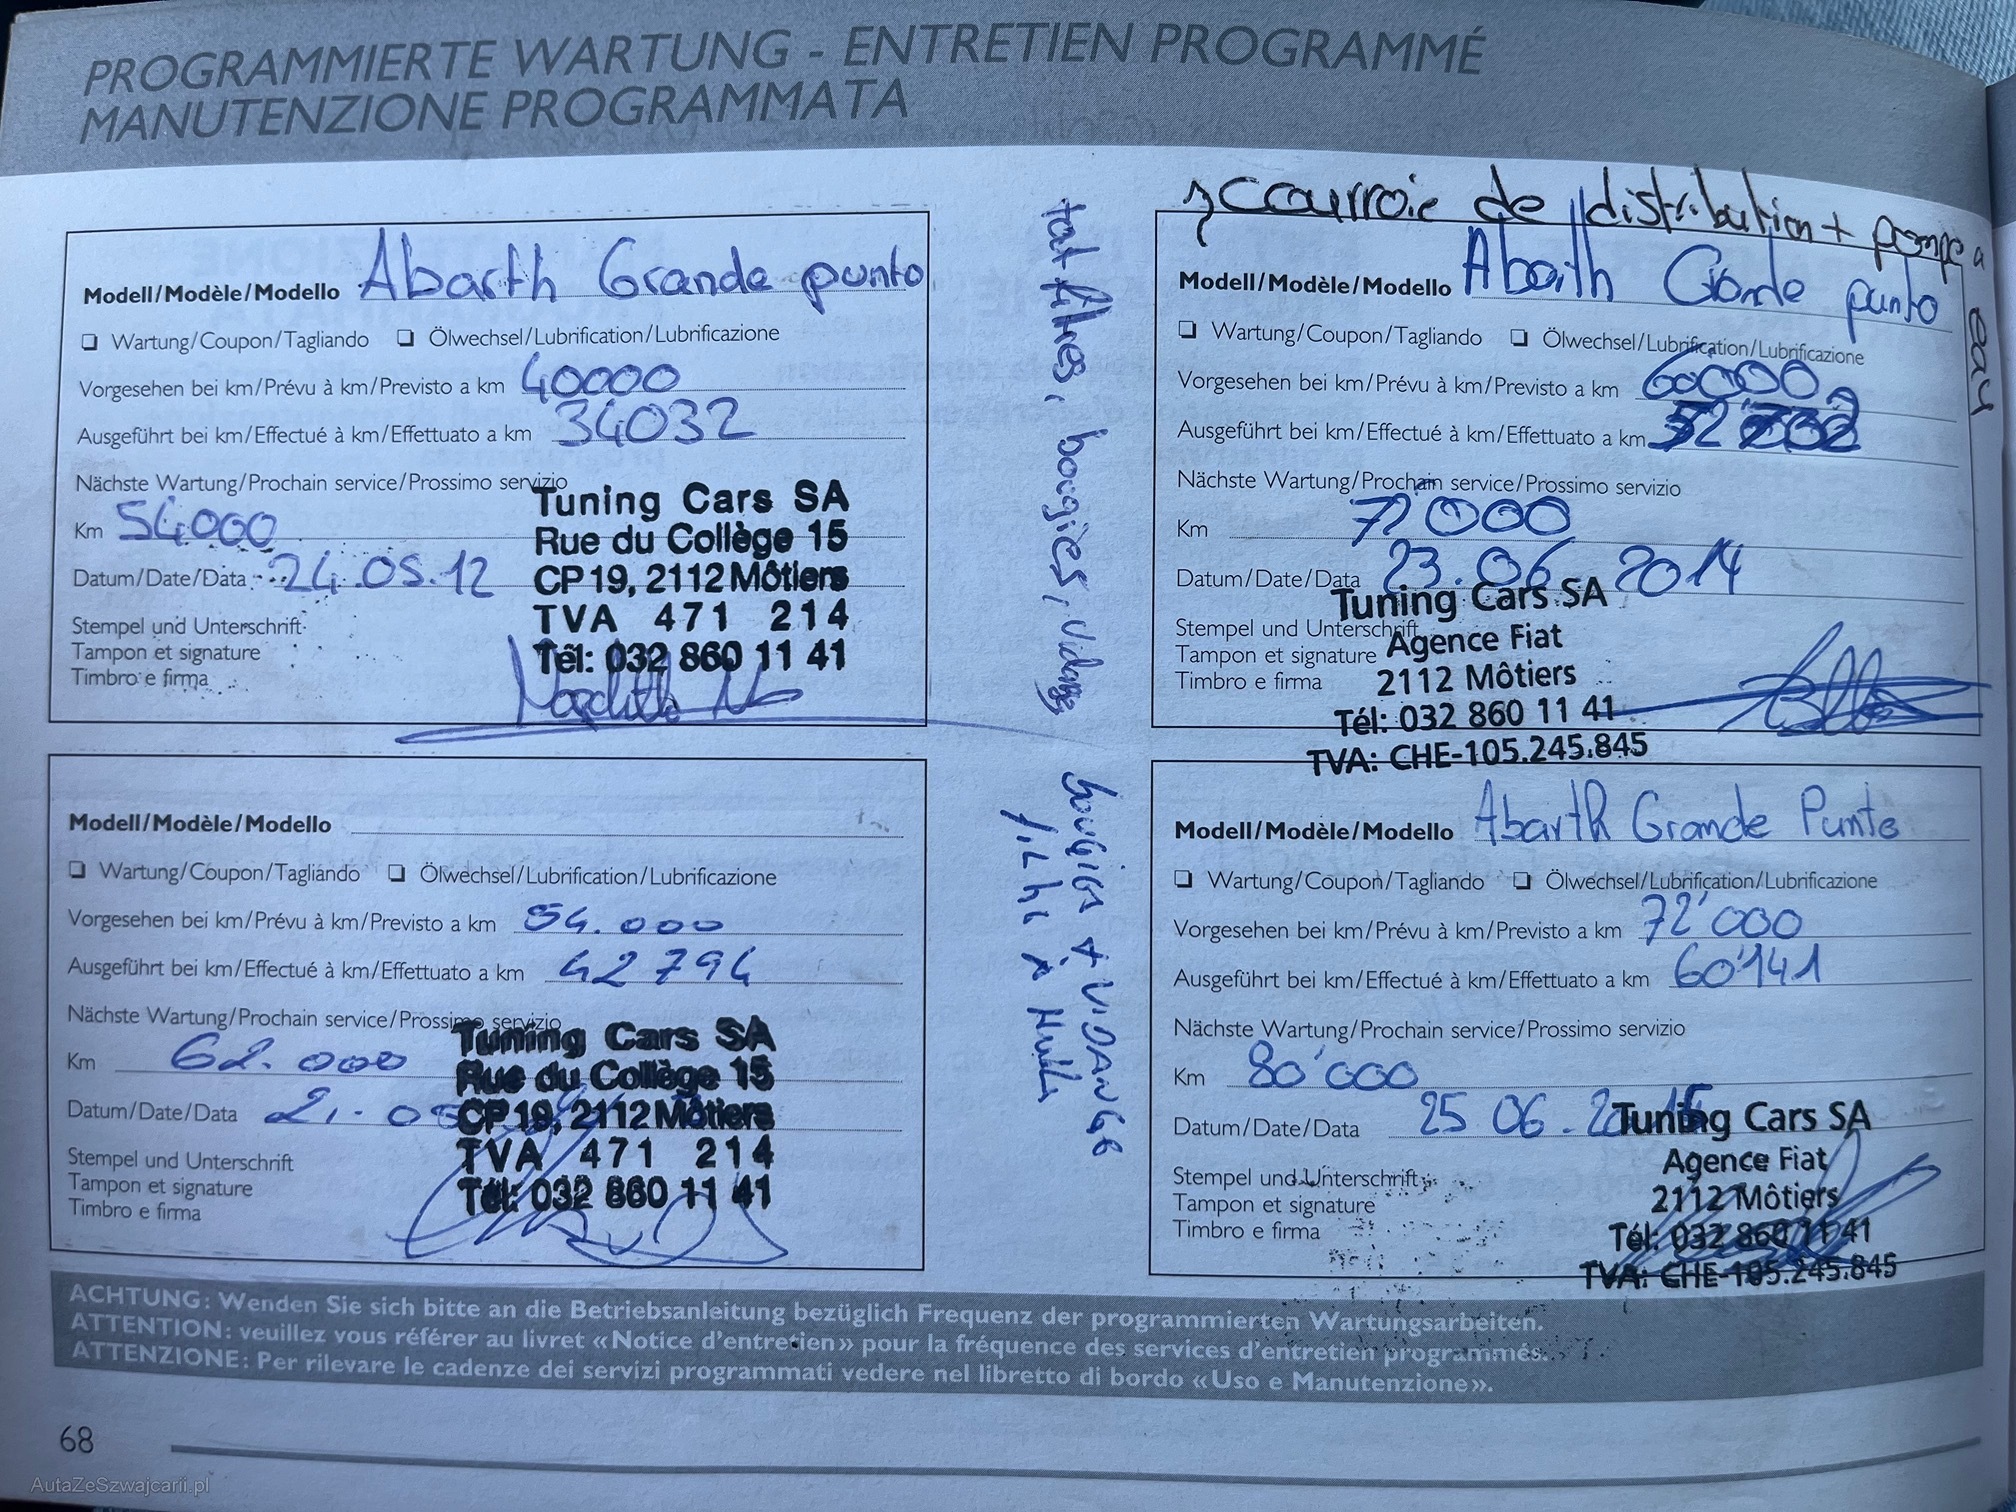 PROGRAMMIERTE WARTUNG - ENTRETIEN PROGRAMMÉ
MANUTENZIONE PROGRAMMATA
Modell/Modèle/Modello Abarth Grande punto
❑ Wartung/Coupon/Tagliando ❑ Ölwechsel/Lubrification/Lubrificazione
Vorgesehen bei km/Prévu à km/Previsto a km 40000
Ausgeführt bei km/Effectué à km/Effettuato a km 34032
Nächste Wartung/Prochain service/Prossimo servizio
Km 54000
Datum/Date/Data 24.05.12
Stempel und Unterschrift
Tampon et signature
Timbro e firma
Tuning Cars SA
Rue du Collège 15
CP 19, 2112 Môtiers
TVA 471 214
Tél: 032 860 11 41
filtres, bougies, vidange
Modell/Modèle/Modello
❑ Wartung/Coupon/Tagliando ❑ Ölwechsel/Lubrification/Lubrificazione
Vorgesehen bei km/Prévu à km/Previsto a km 54.000
Ausgeführt bei km/Effectué à km/Effettuato a km 42794
Nächste Wartung/Prochain service/Prossimo servizio
Km 62.000
Datum/Date/Data
Stempel und Unterschrift
Tampon et signature
Timbro e firma
Tuning Cars SA
Rue du Collège 15
CP 19, 2112 Môtiers
TVA 471 214
Tél: 032 860 11 41
bougies + VIDANGE
courroie de distribution + pompe a eau
Modell/Modèle/Modello Abarth Grande punto
❑ Wartung/Coupon/Tagliando ❑ Ölwechsel/Lubrification/Lubrificazione
Vorgesehen bei km/Prévu à km/Previsto a km 60000
Ausgeführt bei km/Effectué à km/Effettuato a km
Nächste Wartung/Prochain service/Prossimo servizio
Km 72000
Datum/Date/Data 23.06 2014
Stempel und Unterschrift
Tampon et signature
Timbro e firma
Tuning Cars SA
Agence Fiat
2112 Môtiers
Tél: 032 860 11 41
TVA: CHE-105.245.845
Modell/Modèle/Modello Abarth Grande Punto
❑ Wartung/Coupon/Tagliando ❑ Ölwechsel/Lubrification/Lubrificazione
Vorgesehen bei km/Prévu à km/Previsto a km 72'000
Ausgeführt bei km/Effectué à km/Effettuato a km 60'141
Nächste Wartung/Prochain service/Prossimo servizio
Km 80'000
Datum/Date/Data 25 06.
Stempel und Unterschrift
Tampon et signature
Timbro e firma
Tuning Cars SA
Agence Fiat
2112 Môtiers
Tél: 032 860 11 41
TVA: CHE-105.245.845
ACHTUNG: Wenden Sie sich bitte an die Betriebsanleitung bezüglich Frequenz der programmierten Wartungsarbeiten.
ATTENTION: veuillez vous référer au livret «Notice d'entretien» pour la fréquence des services d'entretien programmés.
ATTENZIONE: Per rilevare le cadenze dei servizi programmati vedere nel libretto di bordo «Uso e Manutenzione».
68
AutaZeSzwajcarii.pl